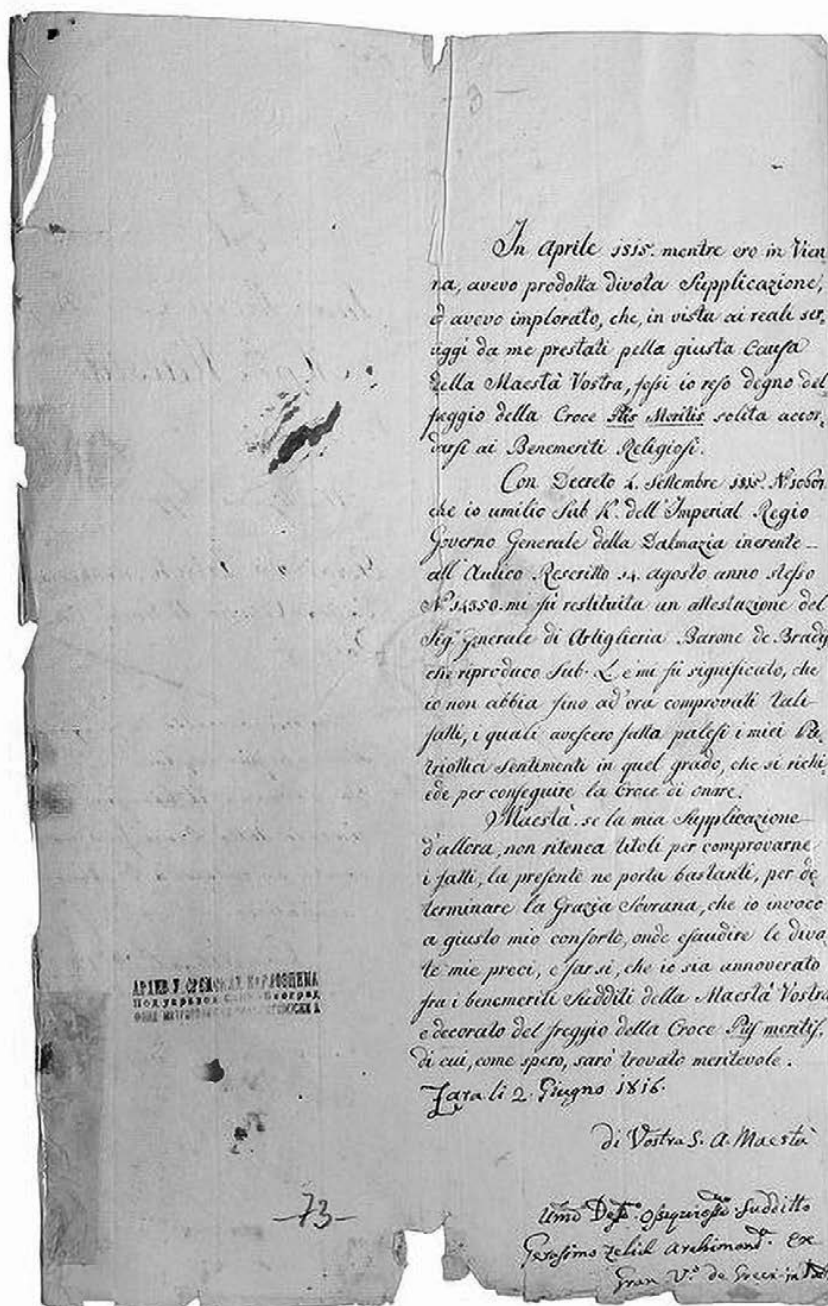 In Aprile 1815. mentre ero in Vien
na, avevo prodotta divota Supplicazione,
ed avevo implorato, che, in vista ai reali ser,
viggi da me prestati pella giusta Causa
della Maestà Vostra, fossi io reso degno del
freggio della Croce Piis Meritis solita accor,
darsi ai Benemeriti Religiosi.
Con Decreto 4. Settembre 1815. Nº
che io umilio Sub K. dell'Imperial Regio
Governo Generale della Dalmazia inerente
all'Aulico Rescritto 14. agosto anno stesso
Nº 14350. mi fù restituita un attestazione del
Sigr Generale di Artiglieria Barone de Brady
che riproduco Sub. L. e mi fù significato, che
io non abbia fino ad'ora comprovati tali
fatti, i quali avessero fatta palesi i miei Pa,
triottici Sentimenti in quel grado, che si richi,
ede per conseguire la Croce di onore.
Maestà. se la mia Supplicazione
d'allora, non ritenea titoli per comprovarne
i fatti, la presente ne porta bastanti, per de
terminare la Grazia Sovrana, che io invoco
a giusto mio conforto, onde esaudire le divo,
te mie preci, e far si, che io sia annoverato
fra i benemeriti Sudditi della Maestà Vostra
e decorato del freggio della Croce Piis meritis,
di cui, come spero, sarò trovato meritevole.
Zara li 2. Giugno 1816.
di Vostra S. A. Maestà
Umo Devmo Ossequiosmo Suddito
Gerasimo Zelich Archimandta Exe
Gran Vº de Greci in
АРХИВ У СРЕМСКИМ КАРЛОВЦИМА
Под управом Београд
-73-